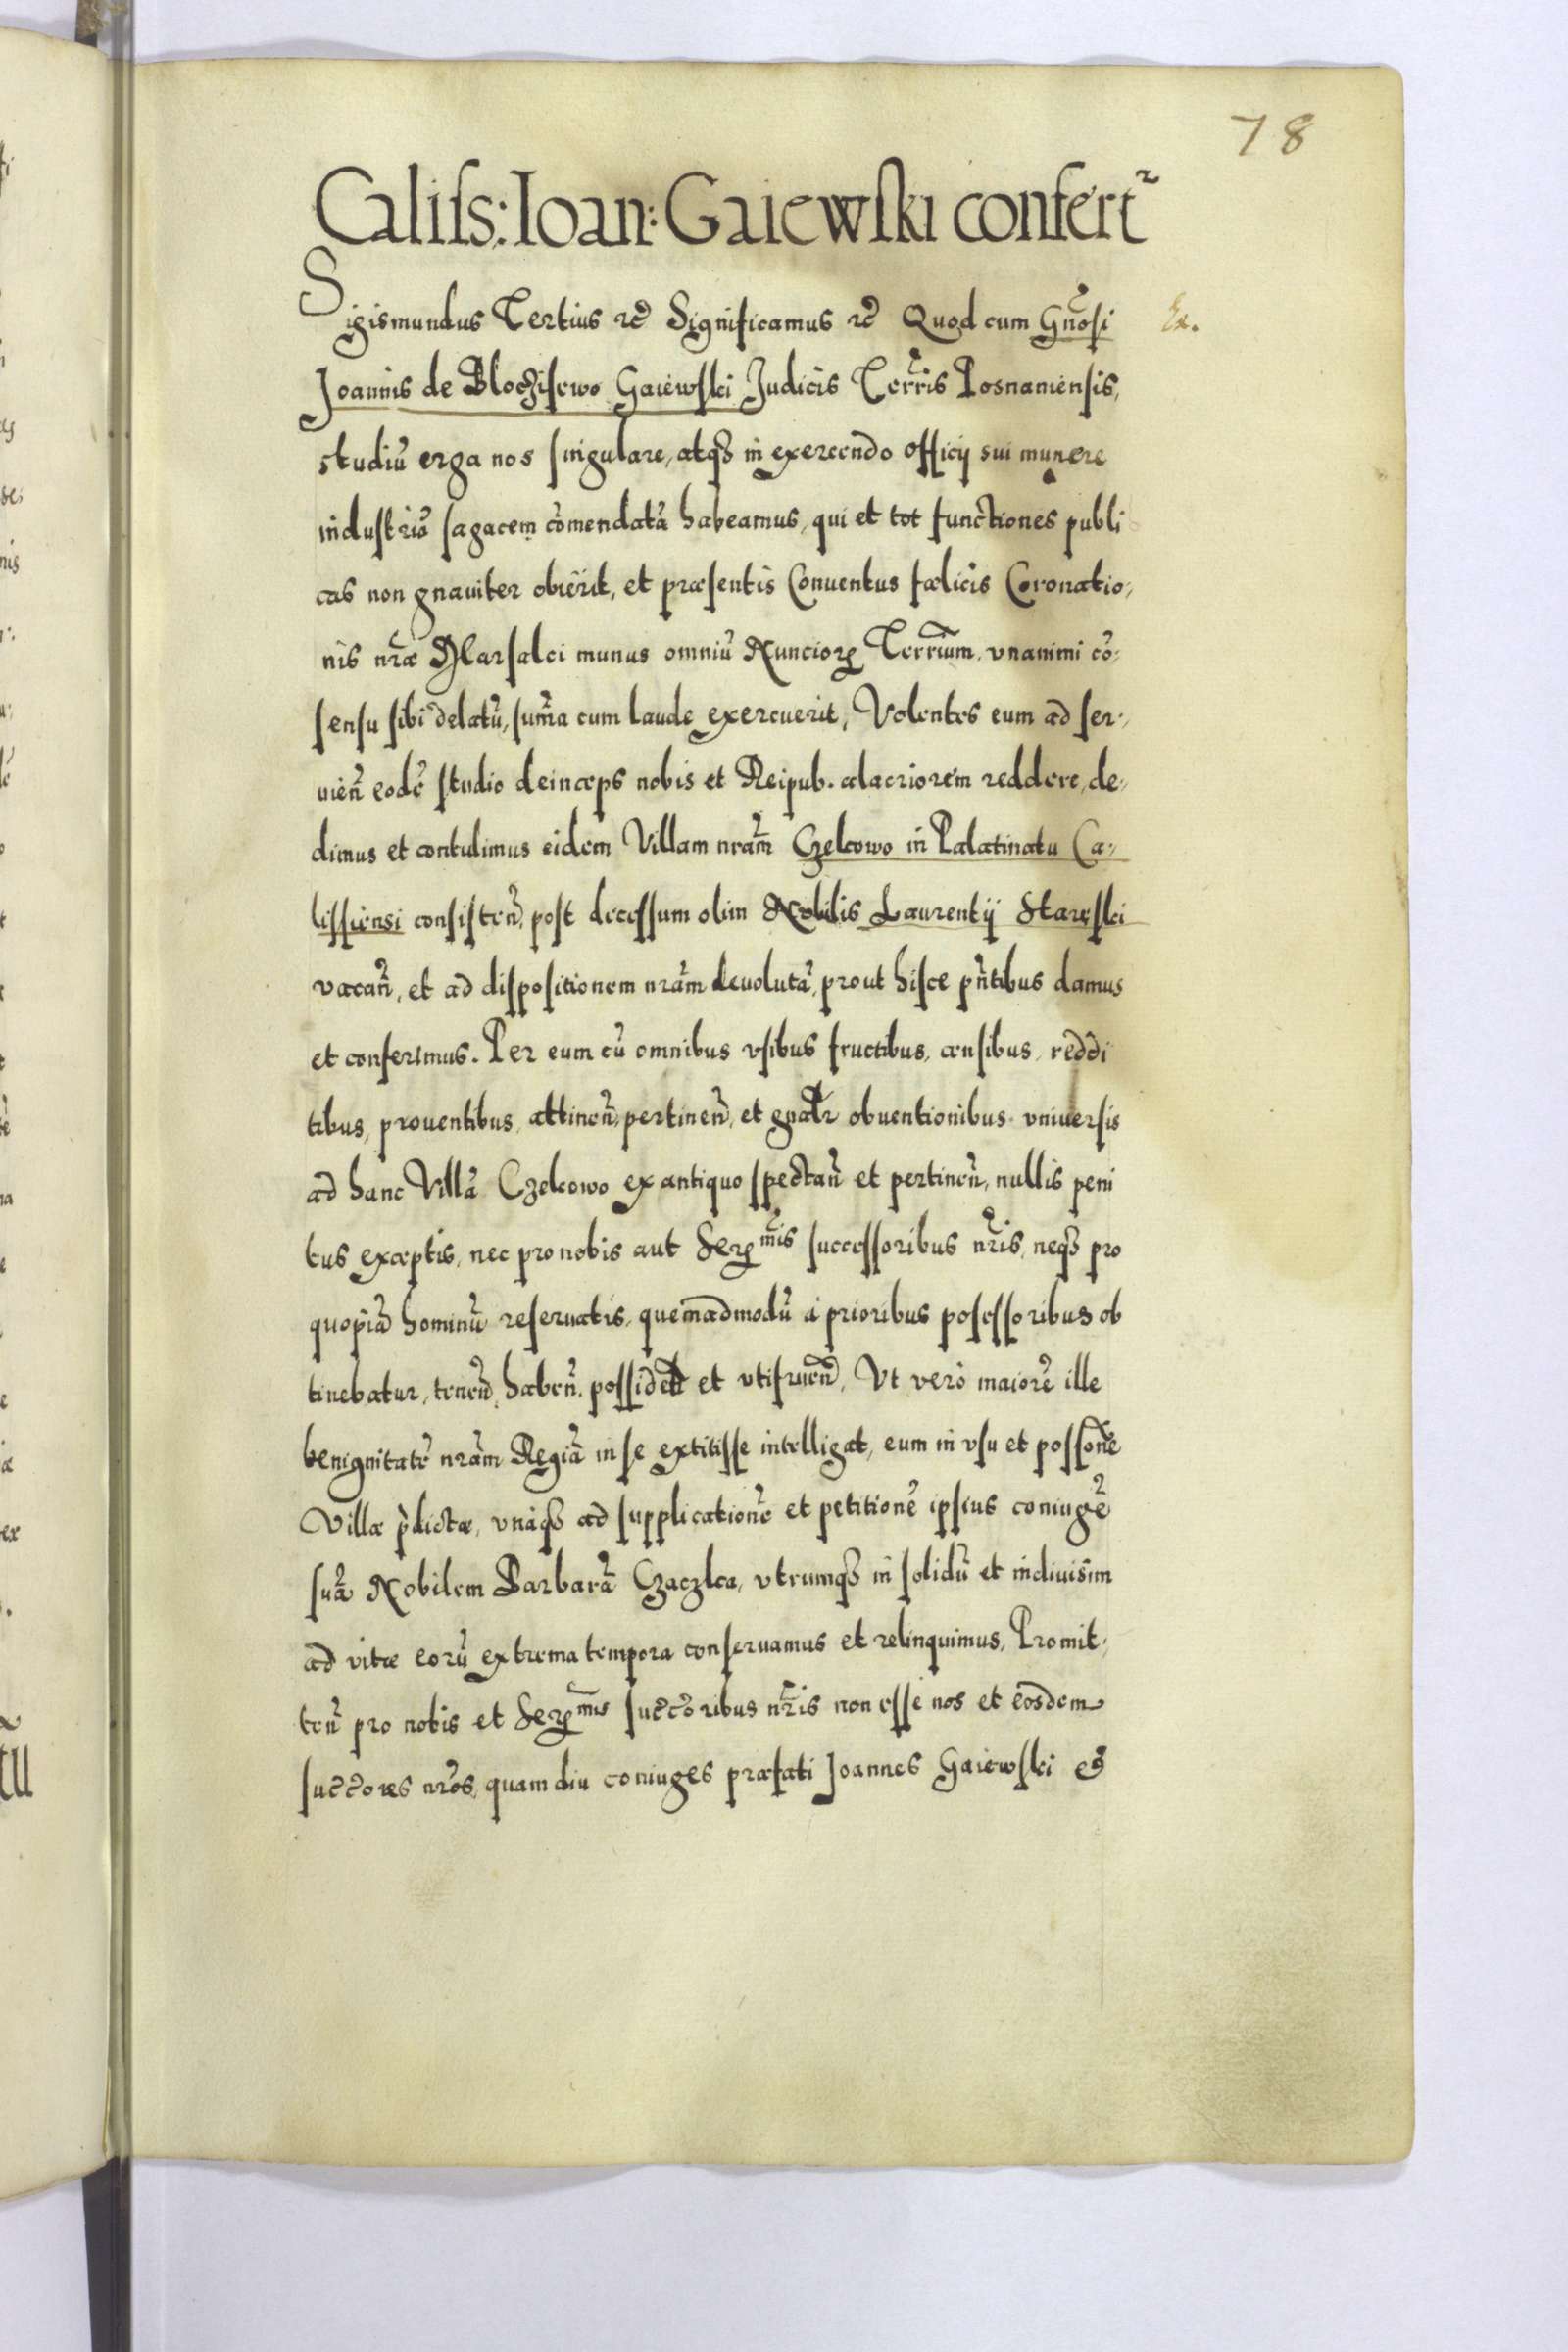 78
Califs: Ioan: Gaiewski confert^r
Sigismundus Tertius rc̃ Significamus rc̃ Quod cum Gnõsi
Ex.
Joannis de Blocziscwo Gaiewski Judicis Terr̃is Posnaniensis,
studiũ erga nos singulare, atq₃ in exercendo officij sui munere
industriã sagacem cõmendatã habeamus, qui et tot functiones publi
cas non gnaviter obierit, et præsentis Conventus fælicis Coronatio,
nis nr̃æ Marsalci munus omniũ Nuncioꝝ Terrium. vnanimi cõ,
sensu sibi delatũ, sum̃a cum laude exercuerit, Volentes eum ad ser,
uieñ eodẽ studio deinceps nobis et Reipub. alacriorem reddere, de,
dimus et contulimus eidem Villam nrãm Czelcowo in Palatinatu Ca,
lissiensi consisteñ, post decessum olim Nobilis Laurentij Starsski
vacañ, et ad dispositionem nrãm devolutã, prout hisce pñtibus damus
et conferimus. Per eum cũ omnibus vsibus fructibus, censibus, reddi
tibus, proventibus, attineñ, pertineñ, et gnalr obventionibus vniversis
ad hanc Villã Czelcowo ex antiquo spectañ et pertineñ, nullis peni
tus exceptis, nec pro nobis aut Serꝝ^mis successoribus nr̃is, neq₃ pro
quopiã hominũ reservatis, quemadmodũ à prioribus posessoribus ob
tinebatur, teneñ, habeñ, possideñ et vtifrueñ, Vt verò maiorẽ ille
benignitatẽ nrãm Regiã in se extitisse intelligat, eum in vsu et possonẽ
Villæ p̃dictæ, vnàq₃ ad supplicationẽ et petitionẽ ipsius coniugẽ
suã Nobilem Barbarã Czaczka, vtrumq₃ in solidũ et indivisim
ad vitæ eorũ extrema tempora conservamus et relinquimus, Promit,
teñ pro nobis et Serꝝ^mis succ̃oribus nr̃is non esse nos et eosdem
succ̃ores nr̃os, quam diu coniuges præfati Joannes Gaiewski et